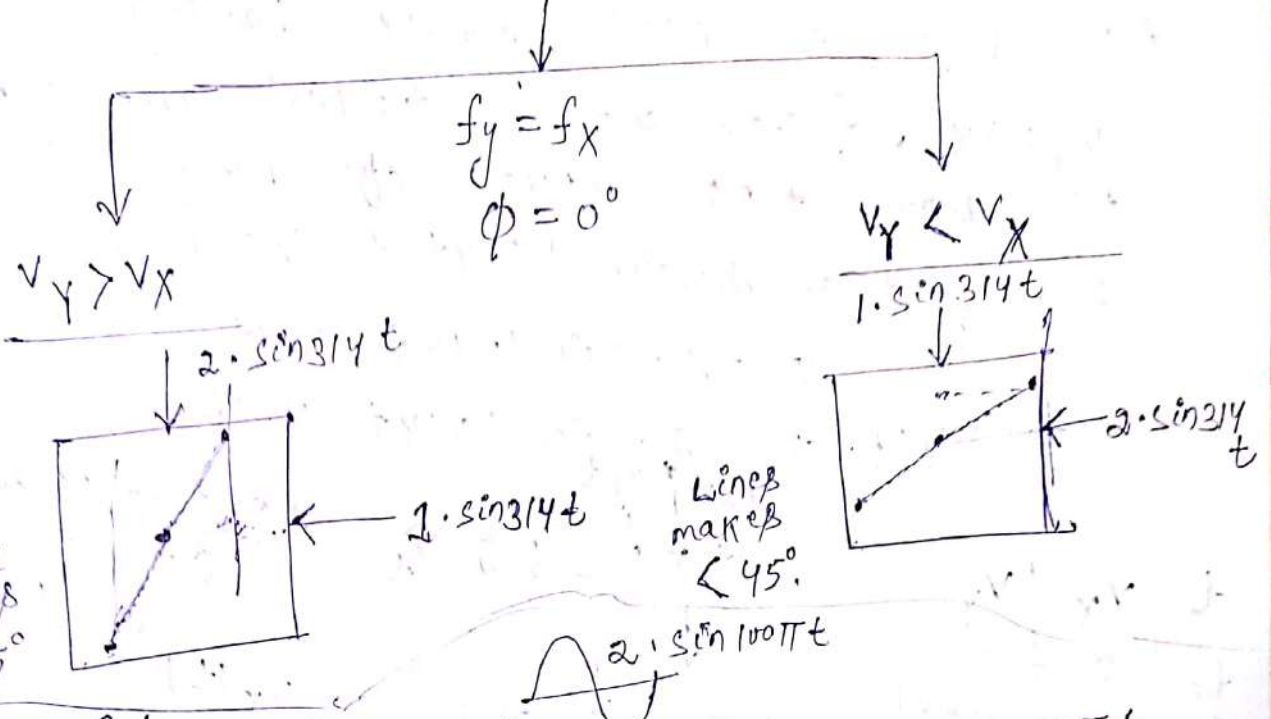 fy = fx
φ = 0°
Vy > Vx
2. sin314t
1. sin314t
Vy < Vx
1. sin 314t
2. sin314
t
Lines
makes
< 45°.
2. sin 100πt